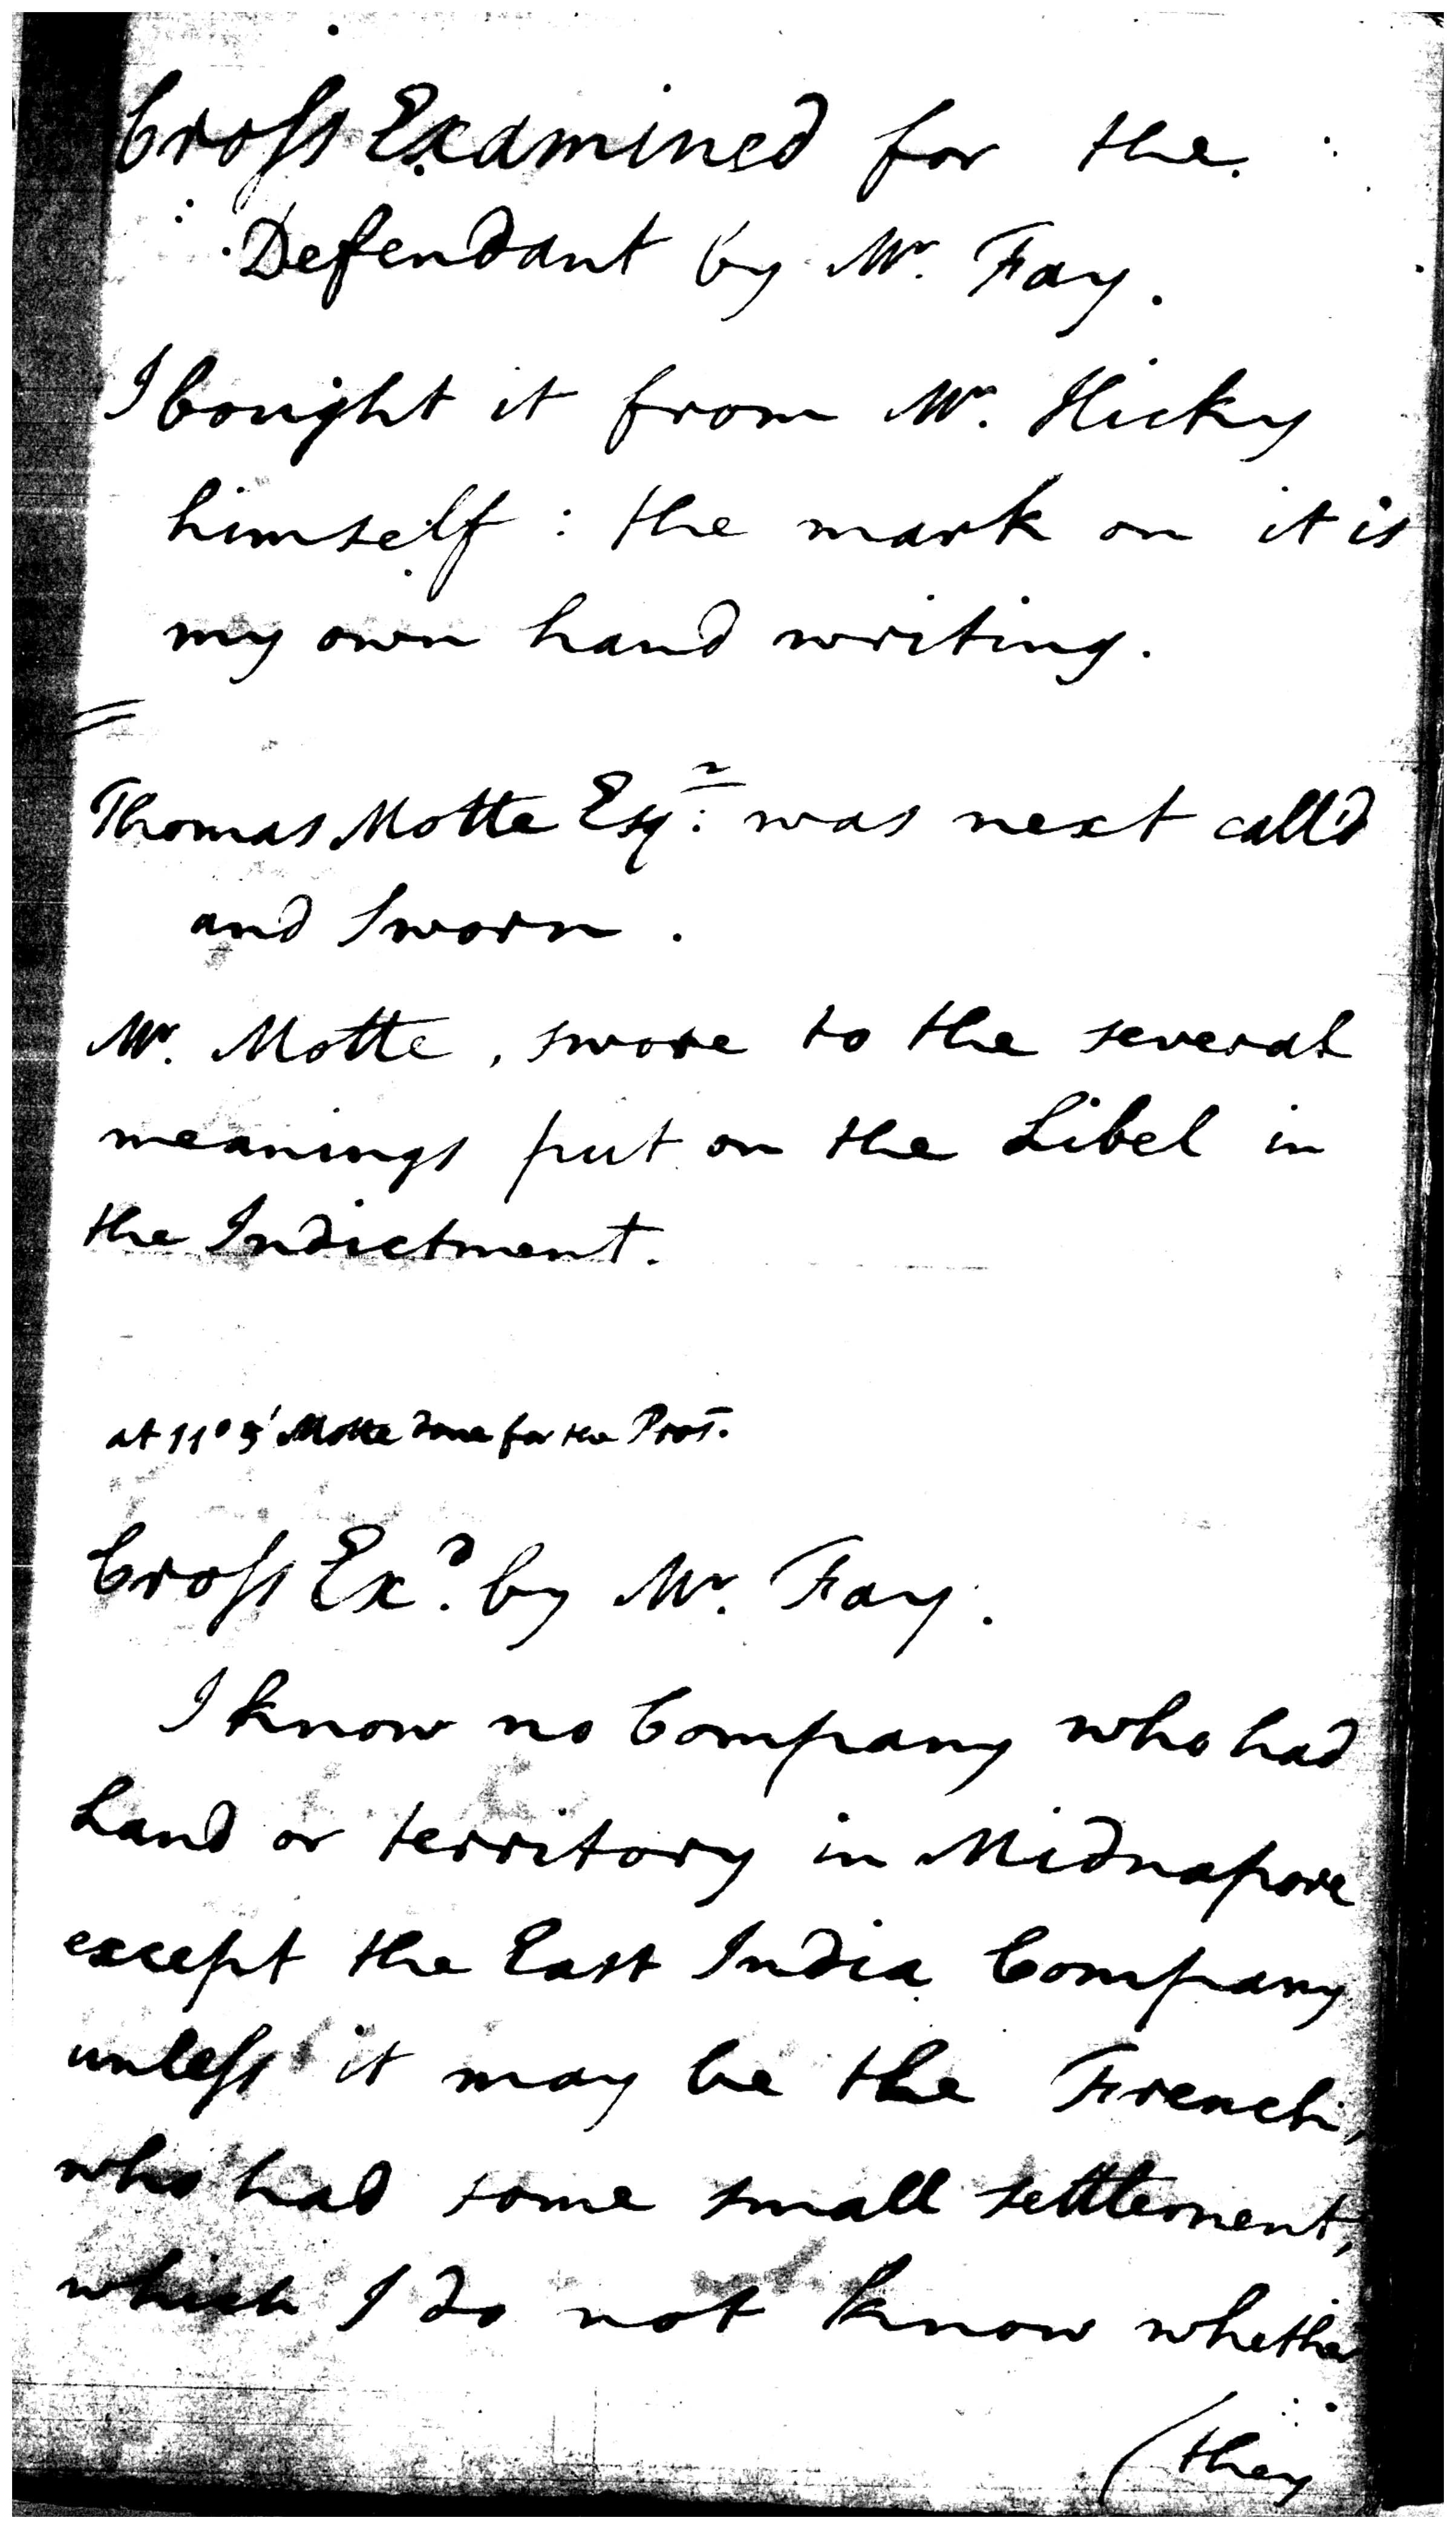 Cross Examined for the
Defendant by Mr. Fay.
I bought it from Mr. Hicky
himself : the mark on it is
my own hand writing.
Thomas Motte Esqr: was next call'd
and Sworn.
Mr. Motte, swore to the several
meanings put on the Libel in
the Indictment.
at 11° 5' Motte done for the Pros.
Cross Exd. by Mr. Fay.
I know no Company who had
Land or territory in Midnapore
except the East India Company
unless it may be the French,
who had some small settlement,
which I do not know whether
(they